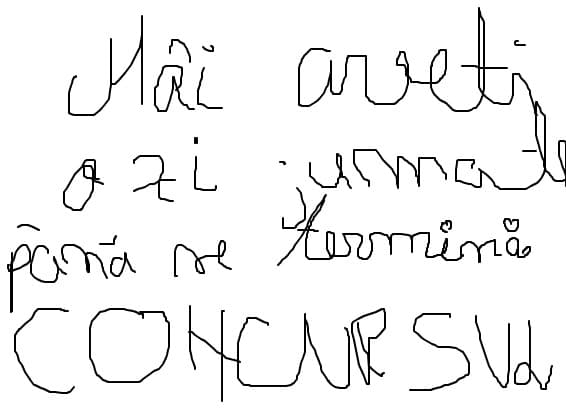 Mâi aveti
o zi jumate
până se termină
CONCURSUL